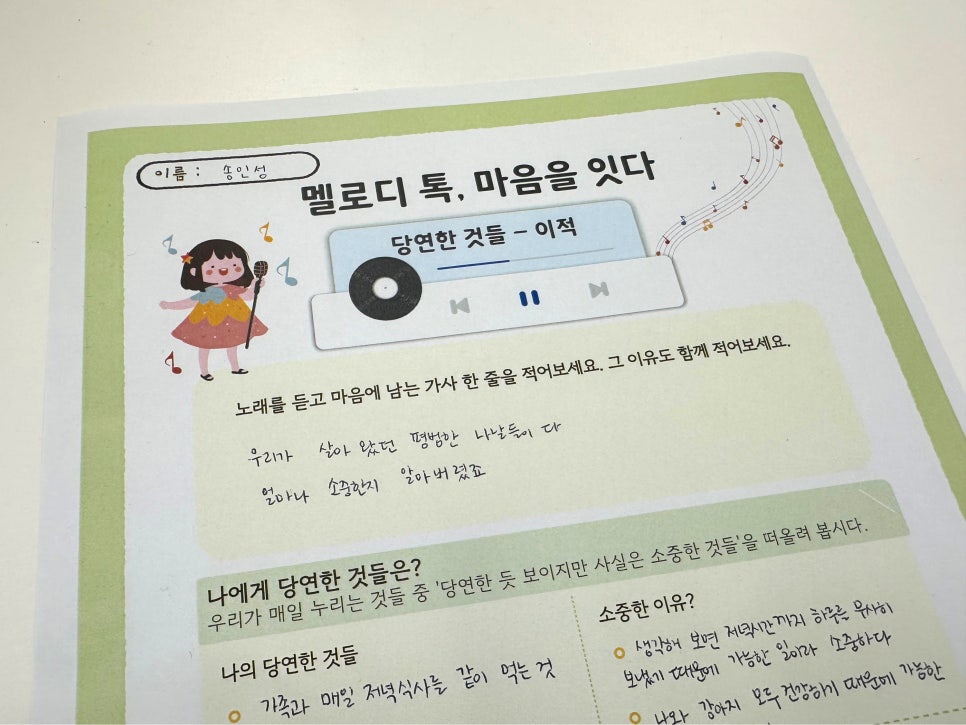 이름 : 송인성
멜로디 톡, 마음을 잇다
당연한 것들 – 이적
노래를 듣고 마음에 남는 가사 한 줄을 적어보세요. 그 이유도 함께 적어보세요.
우리가 살아 왔던 평범한 나날들이 다
얼마나 소중한지 알아버렸죠
나에게 당연한 것들은?
우리가 매일 누리는 것들 중 '당연한 듯 보이지만 사실은 소중한 것들'을 떠올려 봅시다.
나의 당연한 것들
가족과 매일 저녁식사를 같이 먹는 것
소중한 이유?
생각해 보면 저녁시간까지 하루를 무사히
보냈기 때문에 가능한 일이라 소중하다
나와 강아지 모두 건강하기 때문에 가능한